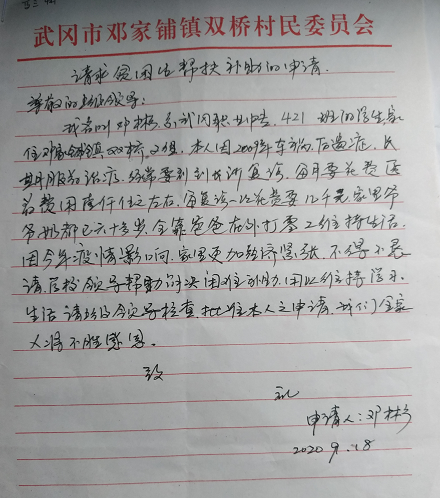 武冈市邓家铺镇双桥村民委员会
请求贫困生帮扶补助的申请
尊敬的上级领导:
我名叫邓林,系武冈职业中专 421 班的学生家
住邓家铺镇双桥2组,本人因2009年车祸后遗症,长
期服药治疗,经常要到长沙复诊,每月要花费医
药费用
左右,每复诊一次花费要几千元,家里爷
爷奶都已六十多岁,全靠爸爸在外打零工维持生活,
因今年疫情影响,家里更加经济紧张,不得不恳
请学校领导帮助解决困难补助,用以维持学习
生活,请上级领导检查,批准本人之申请,我们全家
人将不胜感恩。
致
礼
申请人:邓林
2020 9.18